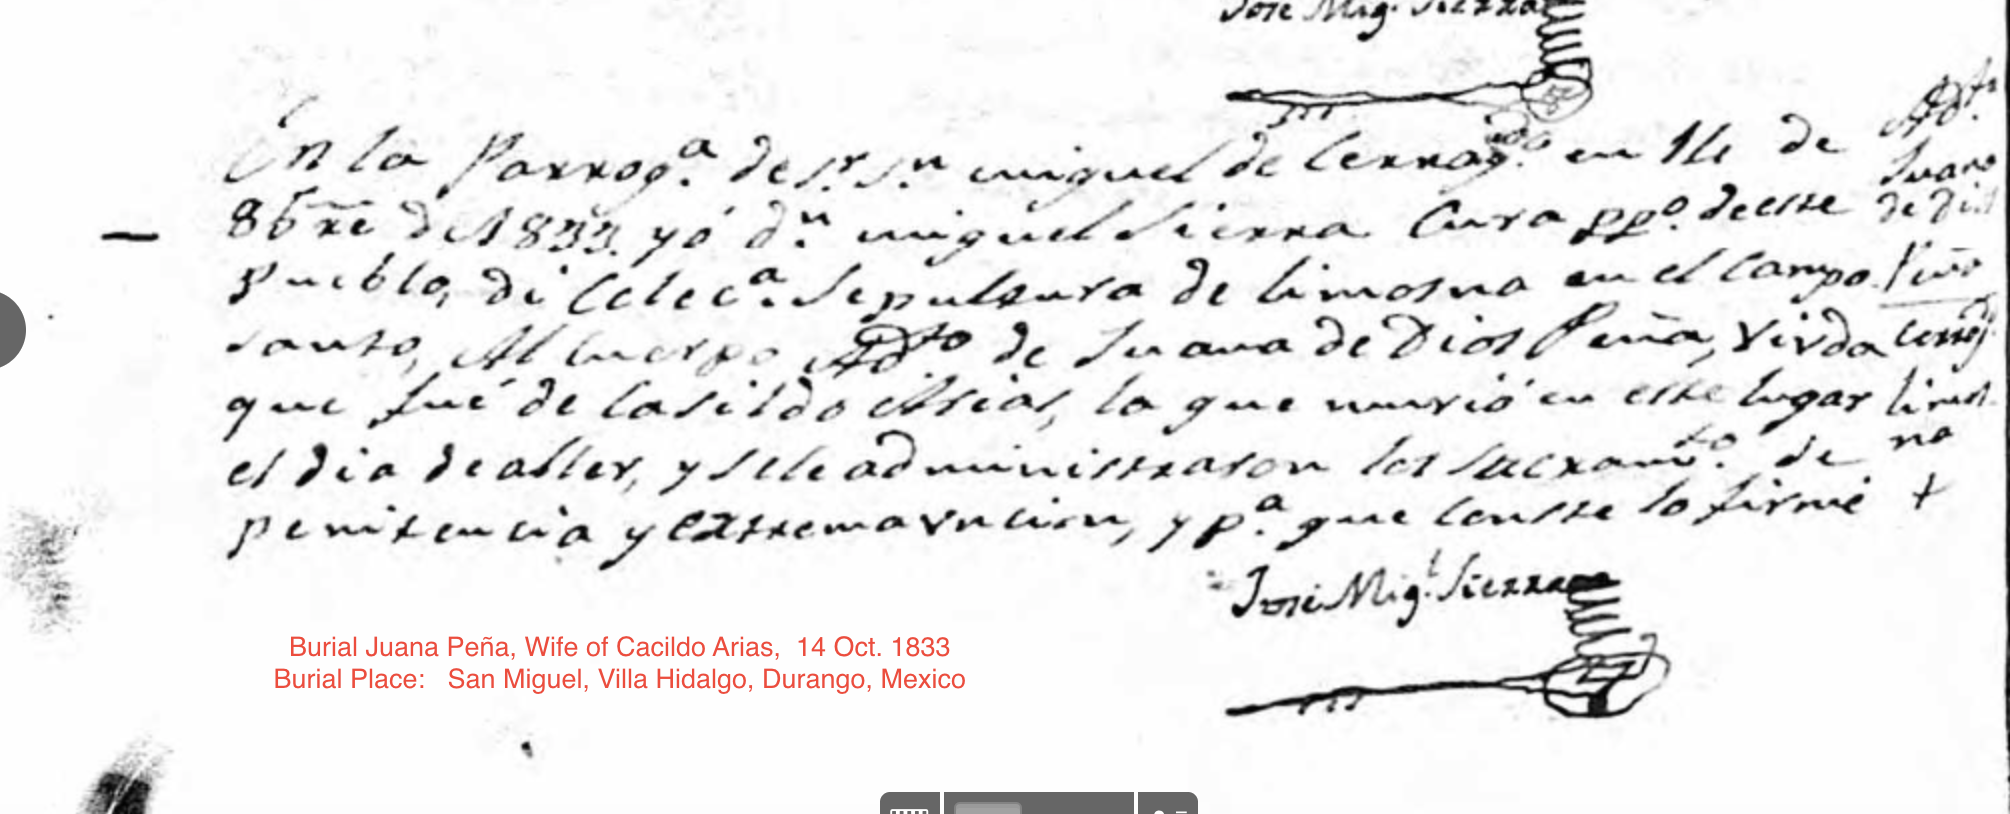 José Mig.l Sierra
En la Parroq.a de S.r S.n miguel de Cerrogdo. en 14 de
8bre de 1833. yó d.n miguel Sierra Cura pp.o de este
Pueblo, di Ecleca. Sepultura de limosna en el Campo
santo, Al Cuerpo Ad.to de Juana de Dios Peña, Vivda
que fué de Casildo Arias, la que murió en este lugar
el dia de aller, y se le administraron los sacram.to de
penitencia y extremavncion, y p.a que conste lo firmé
José Mig.l Sierra
Ad.ta
Juana
de Dios
limos-
na
Burial Juana Peña, Wife of Cacildo Arias, 14 Oct. 1833
Burial Place: San Miguel, Villa Hidalgo, Durango, Mexico